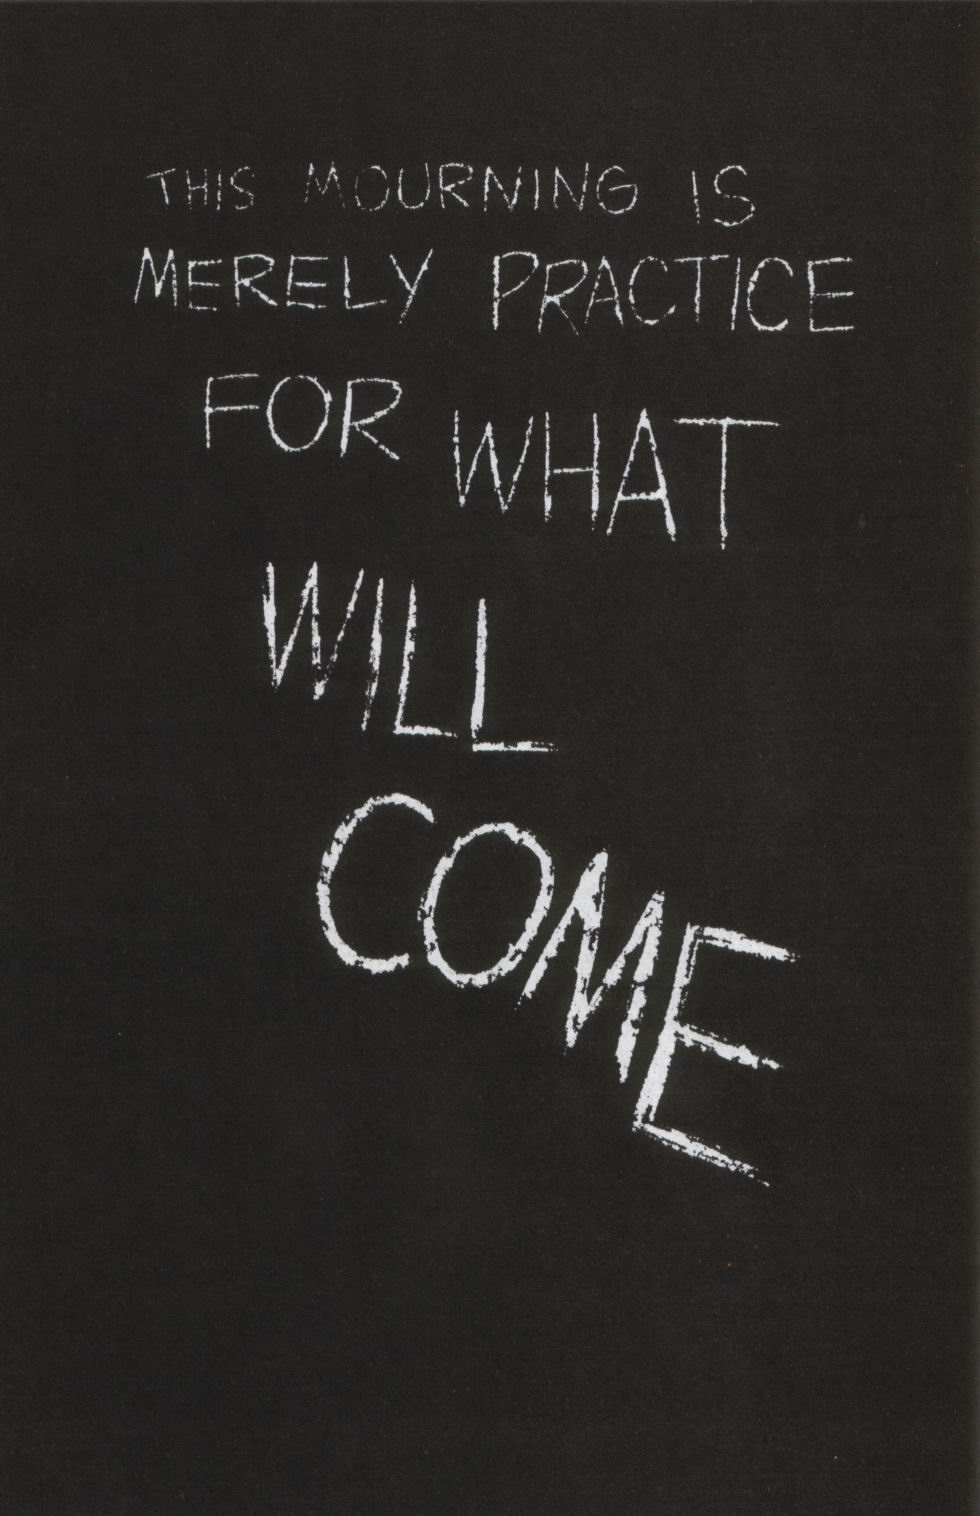 THIS MOURNING IS
MERELY PRACTICE
FOR WHAT
WILL
COME